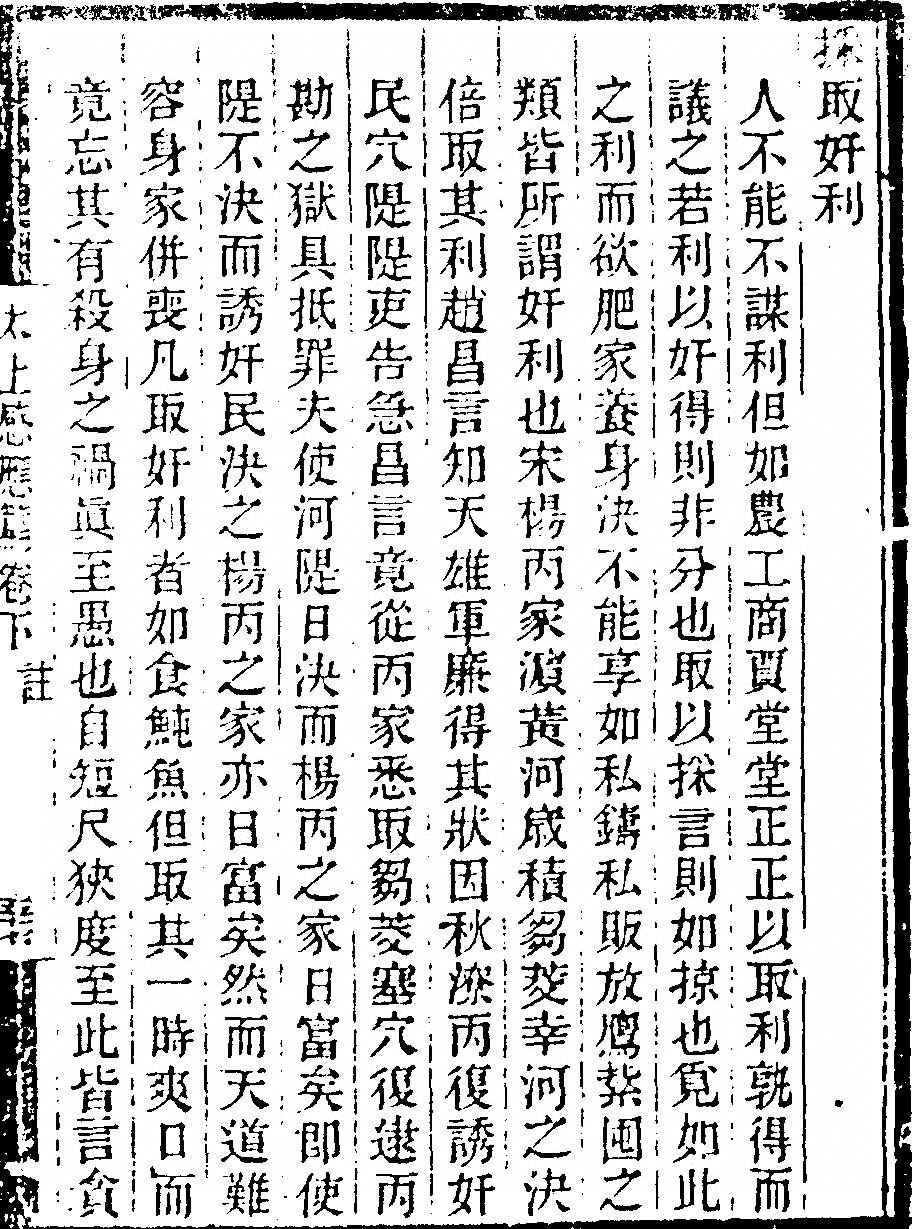 採取奸利
人不能不謀利但如農工商賈堂堂正正以取利孰得而
議之若利以奸得則非分也取以採言則如掠也覓如此
之利而欲肥家養身決不能享如私鑄私販放鷹紮囤之
類皆所謂奸利也宋楊丙家濵黃河歲積芻茭幸河之決
倍取其利趙昌言知天雄軍廉得其狀因秋潦丙復誘奸
民穴隄隄吏告急昌言竟從丙家悉取芻茭塞穴復逮丙
勘之獄具抵罪夫使河隄日決而楊丙之家日富矣即使
隄不決而誘奸民決之楊丙之家亦日富矣然而天道難
容身家併喪凡取奸利者如食魨魚但取其一時爽口而
竟忘其有殺身之禍眞至愚也自短尺狹度至此皆言貪
太上感應篇卷下
註